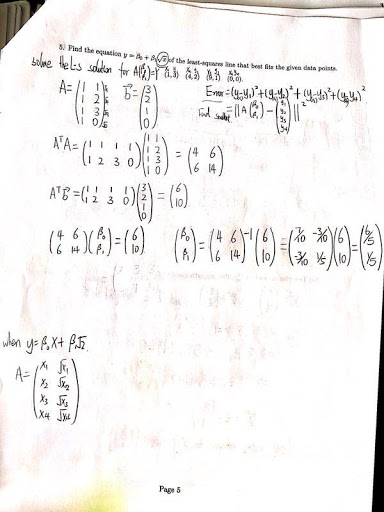 5. Find the equation y = β₀ + β₁√x of the least-squares line that best fits the given data points.
solve the L-s solution for A(β₀ β₁)=Y (1,3) (2,2) (3,1) (0,0).
A=(1 1 1 2 1 3 1 0) b⃗=(3 2 1 0) Error=(y-y₁)²+(y-y₂)²+(y-y₃)²+(y-y₄)²
Find smallest =||A(β₀ β₁)-(y₁ y₂ y₃ y₄)||²
AᵀA=(1 1 1 1 1 2 3 0)(1 1 1 2 1 3 1 0)=(4 6 6 14)
Aᵀb⃗=(1 1 1 1 1 2 3 0)(3 2 1 0)=(6 10)
(4 6 6 14)(β₀ β₁)=(6 10) (β₀ β₁)=(4 6 6 14)⁻¹(6 10)=(7/10 -3/10 -3/10 1/5)(6 10)=(6/5 1/5)
when y=β₀X+β₁√x.
A=(x₁ √x₁
x₂ √x₂
x₃ √x₃
x₄ √x₄)
Page 5